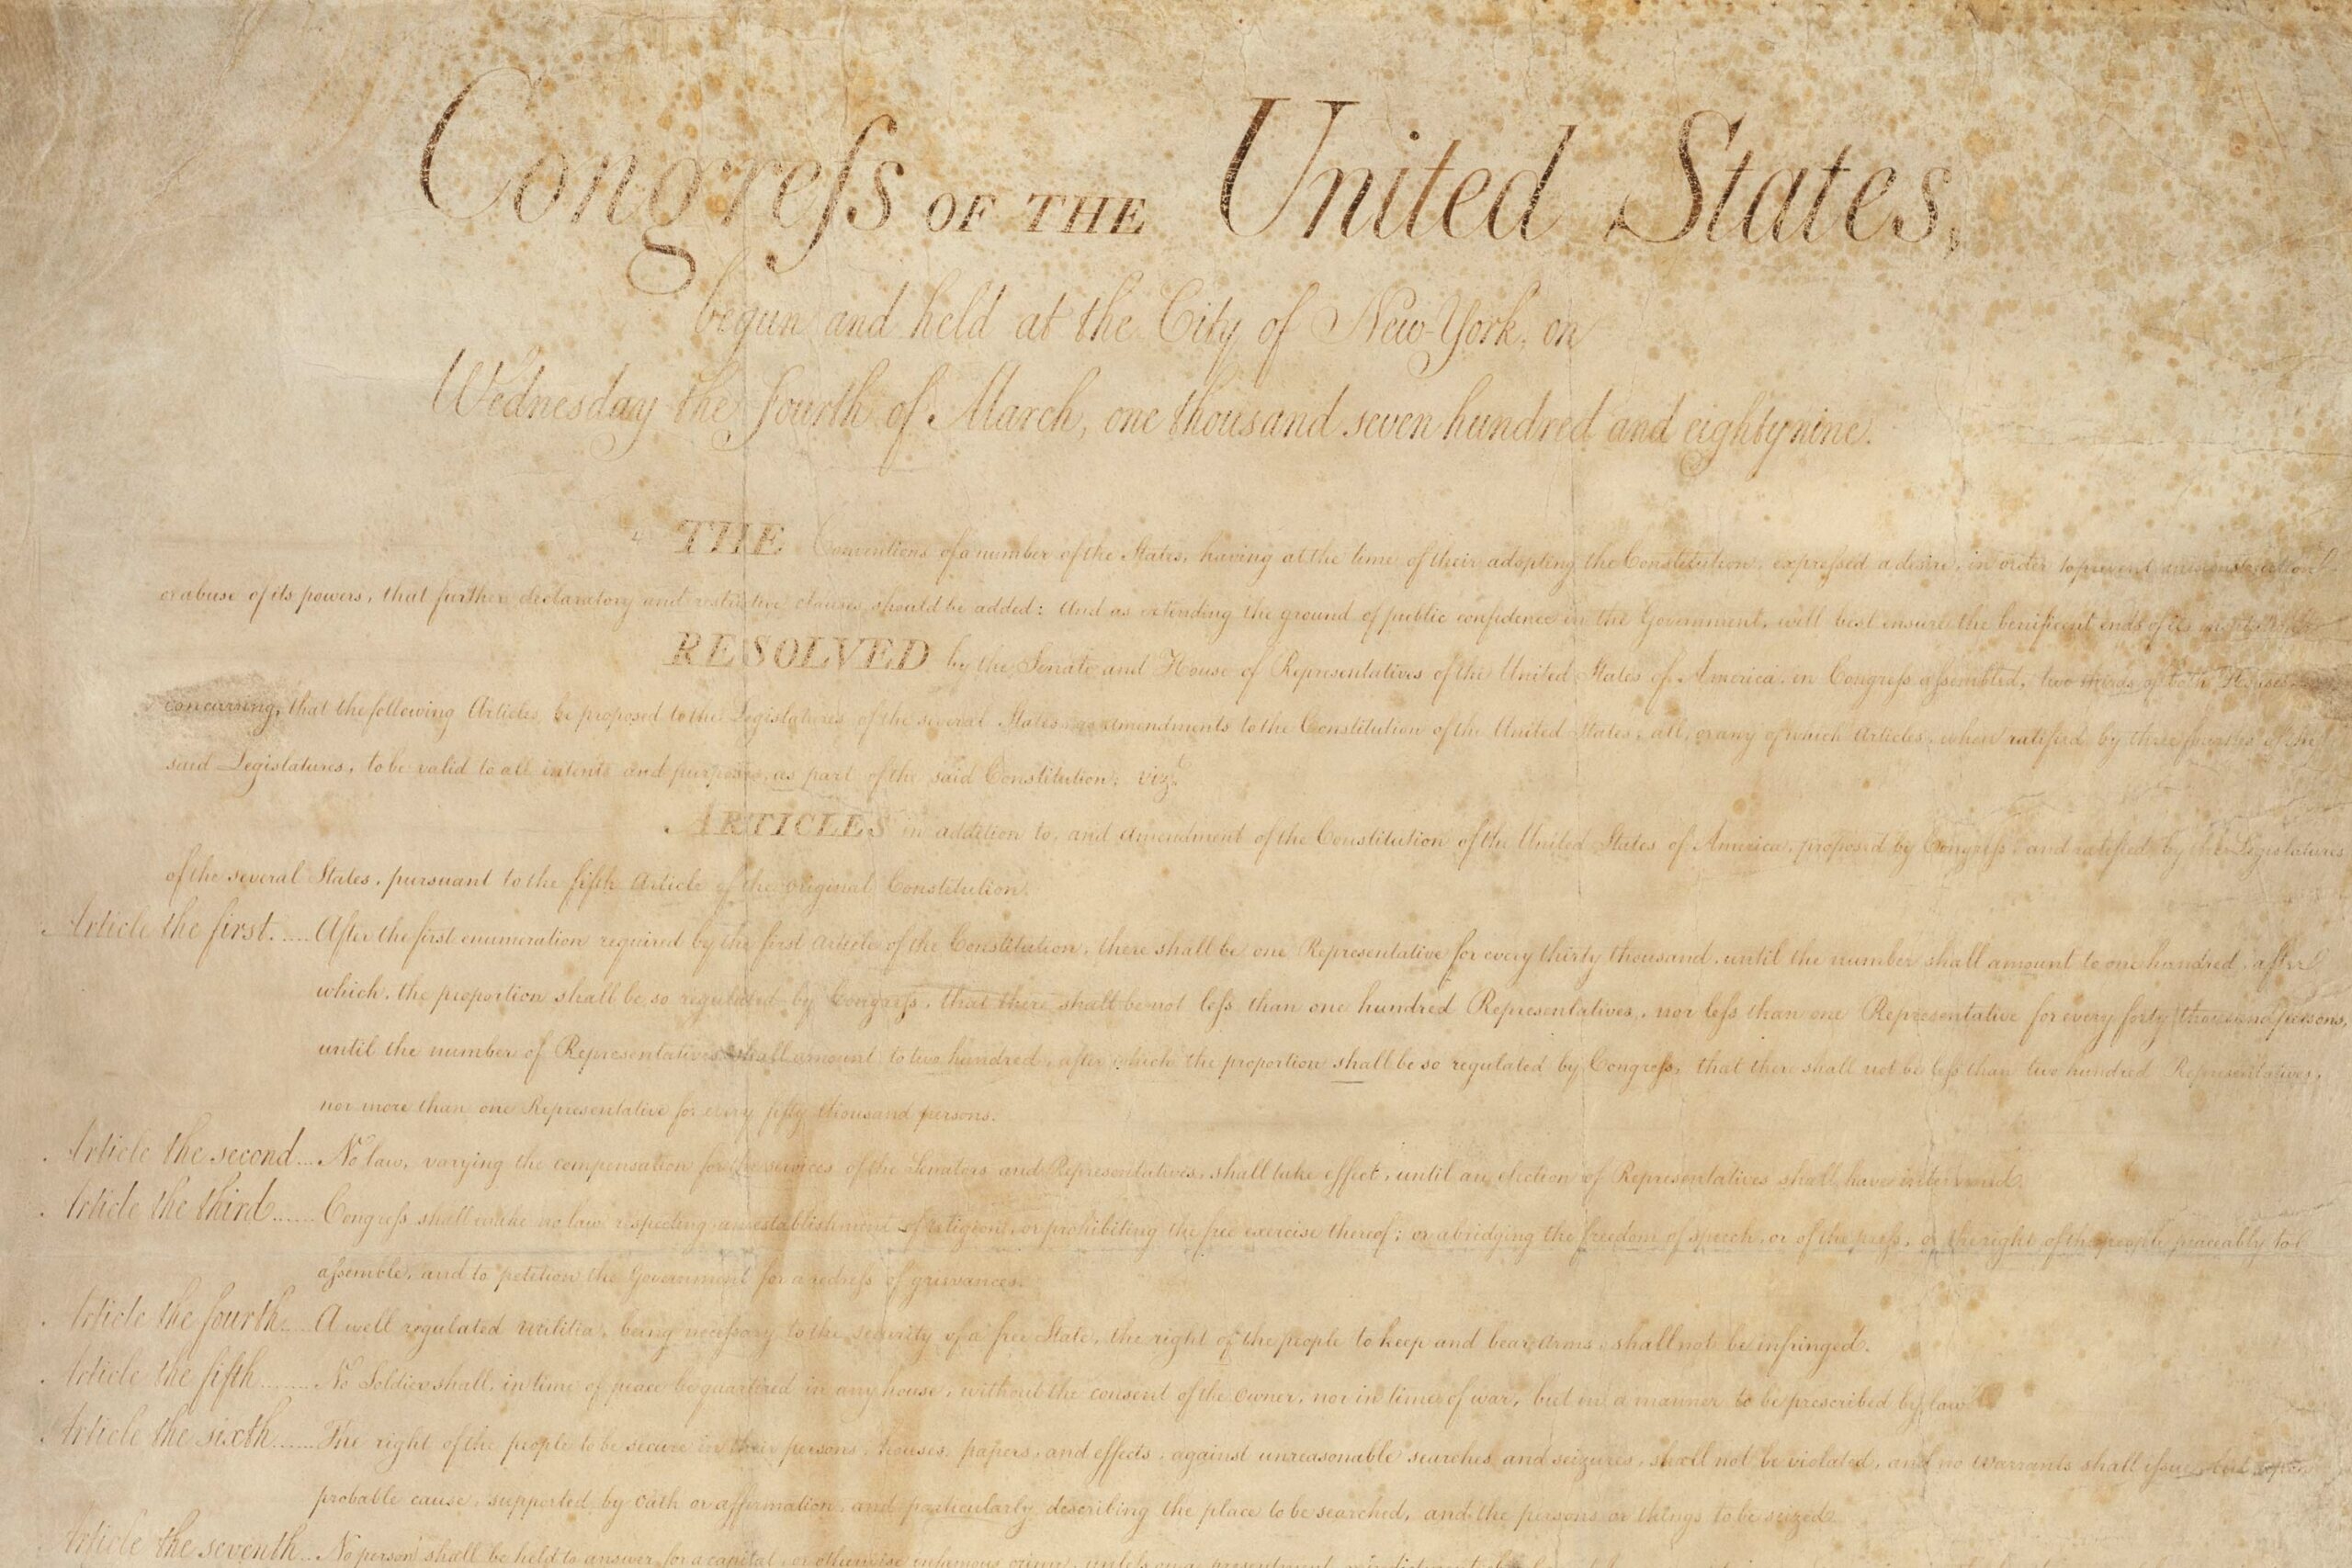 Congreſs OF THE United States,
begun and held at the City of New-York, on
Wednesday the fourth of March, one thousand seven hundred and eighty nine.
THE Conventions of a number of the States, having at the time of their adopting the Constitution, expreſsed a desire, in order to prevent misconstruction
or abuse of its powers, that further declaratory and restrictive clauses should be added: And as extending the ground of public confidence in the Government, will best ensure the benificent ends of its
RESOLVED by the Senate and House of Representatives of the United States of America, in Congreſs aſsembled, two thirds of both Houses
concurring, that the following Articles be proposed to the Legislatures of the several States, as amendments to the Constitution of the United States, all, or any of which Articles, when ratified by three fourths of the
said Legislatures, to be valid to all intents and purposes, as part of the said Constitution; vizt
ARTICLES in addition to, and Amendment of the Constitution of the United States of America, proposed by Congreſs, and ratified by the Legislatures
of the several States, pursuant to the fifth Article of the original Constitution.
Article the first..... After the first enumeration required by the first Article of the Constitution, there shall be one Representative for every thirty thousand, until the number shall amount to one hundred, after
which, the proportion shall be so regulated by Congreſs, that there shall be not leſs than one hundred Representatives, nor leſs than one Representative for every forty thousand persons,
until the number of Representatives shall amount to two hundred, after which the proportion shall be so regulated by Congreſs, that there shall not be leſs than two hundred Representatives,
nor more than one Representative for every fifty thousand persons.
Article the second... No law, varying the compensation for the services of the Senators and Representatives, shall take effect, until an election of Representatives shall have intervened.
Article the third...... Congreſs shall make no law respecting an establishment of religion, or prohibiting the free exercise thereof; or abridging the freedom of speech, or of the preſs, or the right of the people peaceably to
aſsemble, and to petition the Government for a redreſs of grievances.
Article the fourth.... A well regulated Militia, being neceſsary to the security of a free State, the right of the people to keep and bear Arms, shall not be infringed.
Article the fifth........ No Soldier shall, in time of peace be quartered in any house, without the consent of the Owner, nor in time of war, but in a manner to be prescribed by law.
Article the sixth...... The right of the people to be secure in their persons, houses, papers, and effects, against unreasonable searches and seizures, shall not be violated, and no Warrants shall iſsue, but upon
probable cause, supported by Oath or affirmation, and particularly describing the place to be searched, and the persons or things to be seized.
Article the seventh.. No person shall be held to answer for a capital, or otherwise infamous crime, unleſs on a presentment or indictment